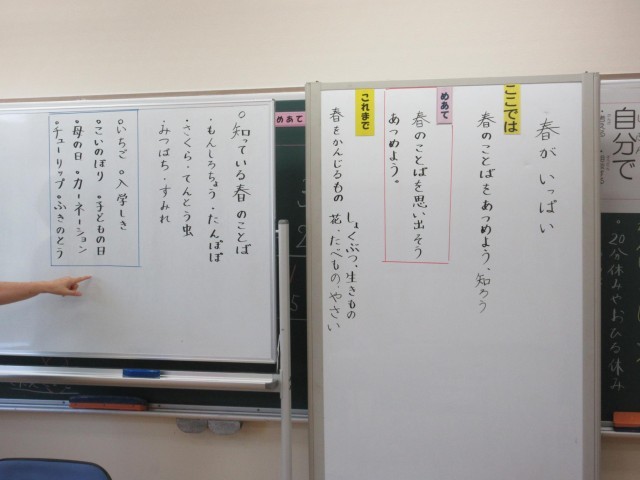 春が いっぱい
ここでは
春のことばをあつめよう、知ろう
めあて
春のことばを思い出そう
あつめよう。
これまで
春をかんじるもの しょくぶつ、生きもの
花、たべもの、やさい
めあて
○知っている春のことば
・もんしろちょう・たんぽぽ
・さくら・てんとう虫
・みつばち・すみれ
・いちご ・入学しき
・こいのぼり ・子どもの日
・母の日 ・カーネーション
・チューリップ ・ふきのとう
自分で
・20分休みやおひる休み